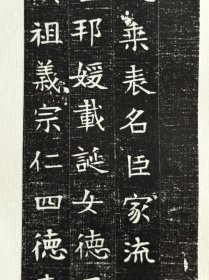 桒表名臣家流
邦媛載誕女德
祖義宗仁四德